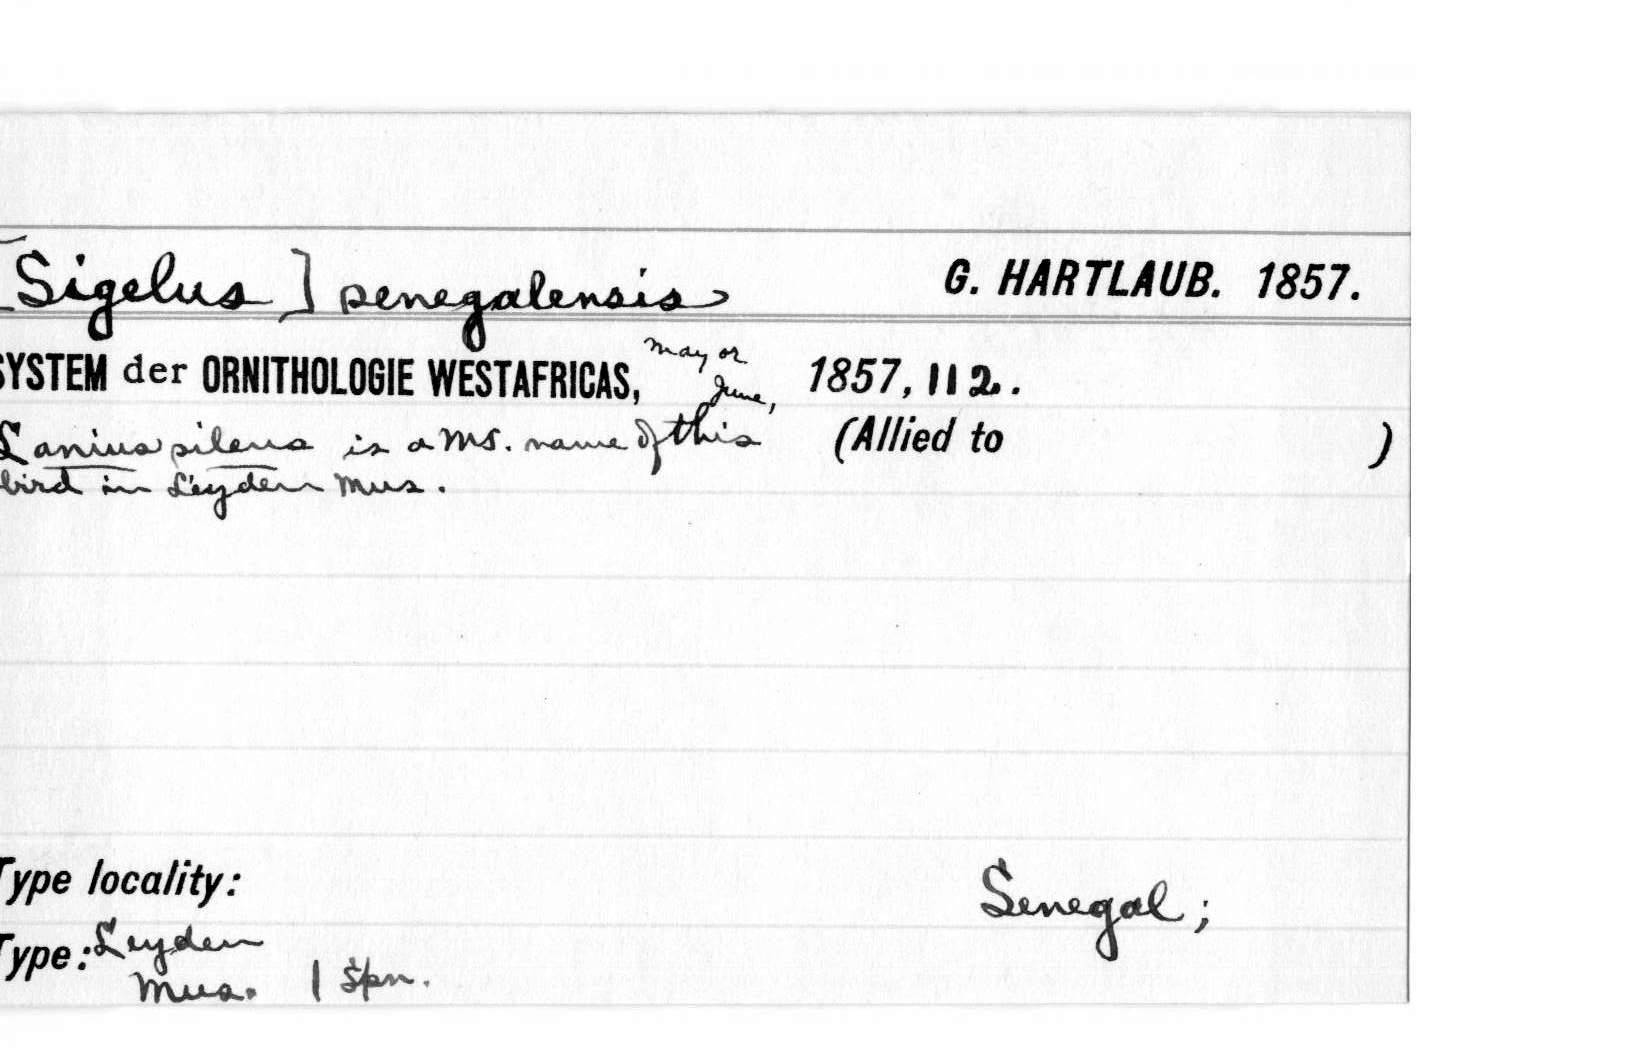 [Sigelus] senegalensis G. HARTLAUB. 1857.
SYSTEM der ORNITHOLOGIE WESTAFRICAS, May or June, 1857, 112.
Lanius silens is a MS. name of this (Allied to )
bird in Leyden Mus.
Type locality: Senegal;
Type: Leyden
Mus. 1 Spn.